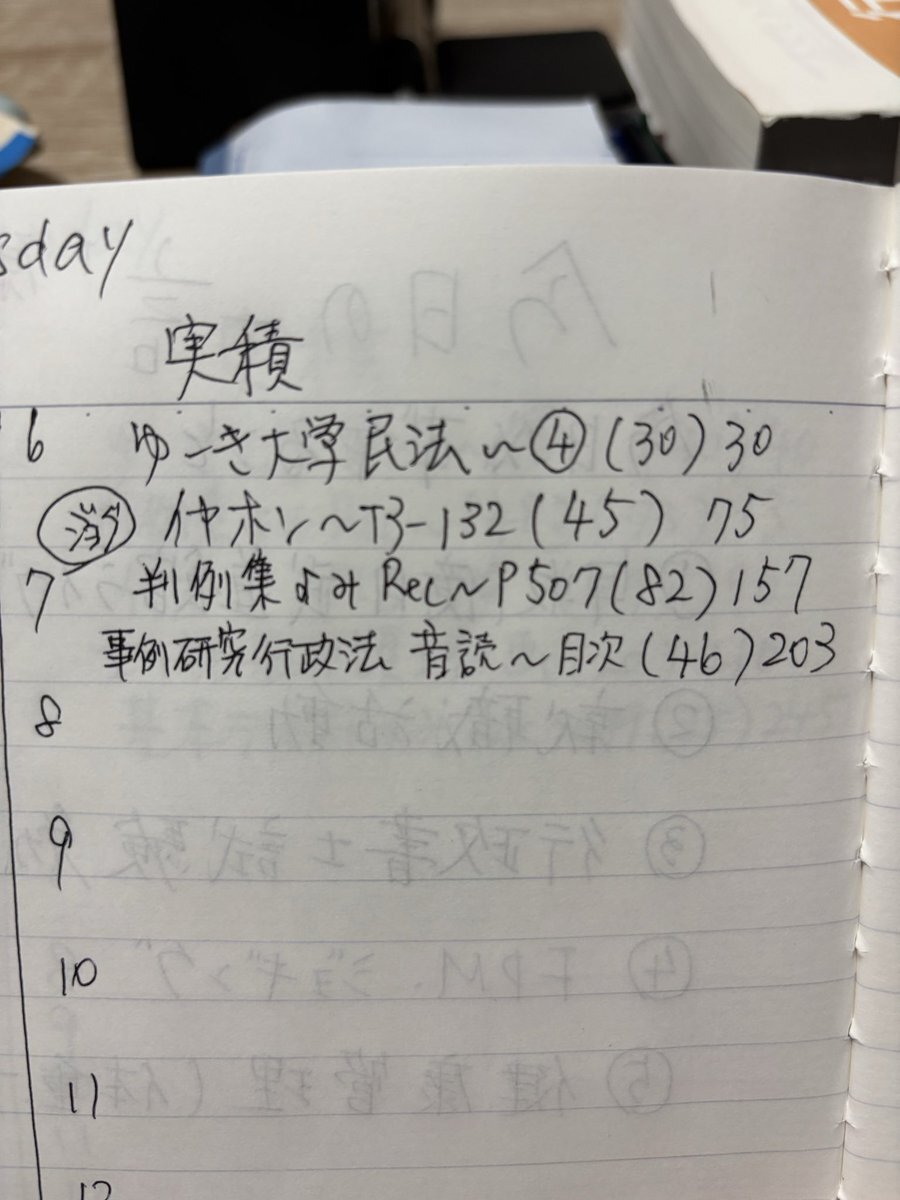 sday
実積
6 ゆーき大学民法～④(30)30
ジョグ イヤホン～T3-132(45) 75
7 判例集よみRec～P507(82)157
事例研究行政法 音読～目次(46)203
8
9
10
11
12